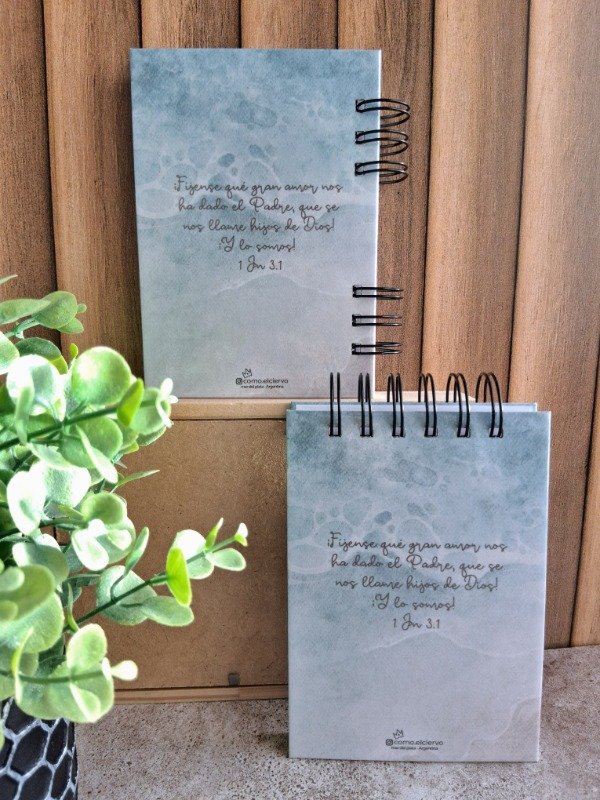 ¡Fíjense qué gran amor nos
ha dado el Padre, que se
nos llame hijos de Dios!
¡Y lo somos!
1 Jn 3.1
como.elciervo
mar del plata - Argentina
¡Fíjense qué gran amor nos
ha dado el Padre, que se
nos llame hijos de Dios!
¡Y lo somos!
1 Jn 3.1
como.elciervo
mar del plata - Argentina